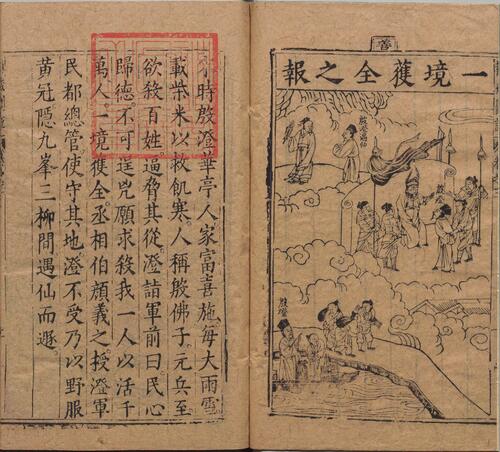 善
一境獲全之報
殷澄
殷澄
宋時殷澄華亭人家富喜施每大雨雪
載柴米以救飢寒人稱殷佛子元兵至
欲殺百姓逼脅其從澄詣軍前曰民心
歸德不可逞兇願求殺我一人以活千
萬人一境獲全丞相伯顏義之授澄軍
民都總管使守其地澄不受乃以野服
黃冠隱九峯三柳間遇仙而遯